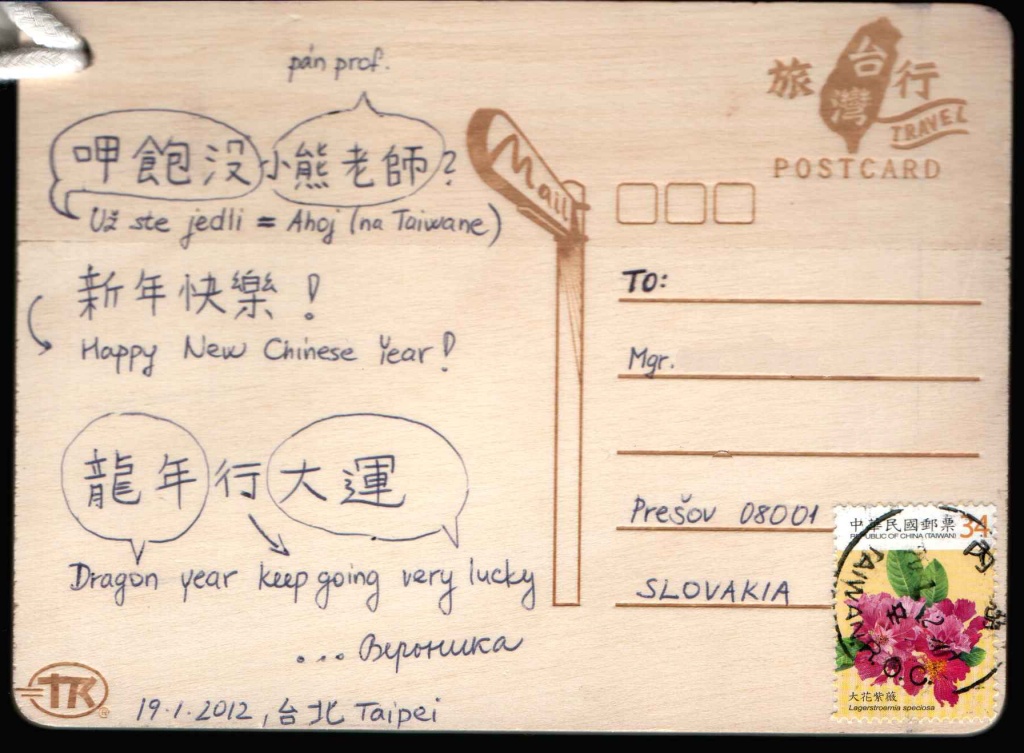 pán prof.
呷飽没小熊老師?
Už ste jedli = Ahoj (na Taiwane)
新年快樂!
Happy New Chinese Year!
龍年行大運
Dragon year keep going very lucky
... Вероника
19.1.2012, 台北 Taipei
TK
Mail
旅台灣行
TRAVEL
POSTCARD
To:
Mgr.
Prešov 08001
SLOVAKIA
中華民國郵票 34
REPUBLIC OF CHINA (TAIWAN)
TAIWAN R.O.C.
大花紫薇
Lagerstroemia speciosa